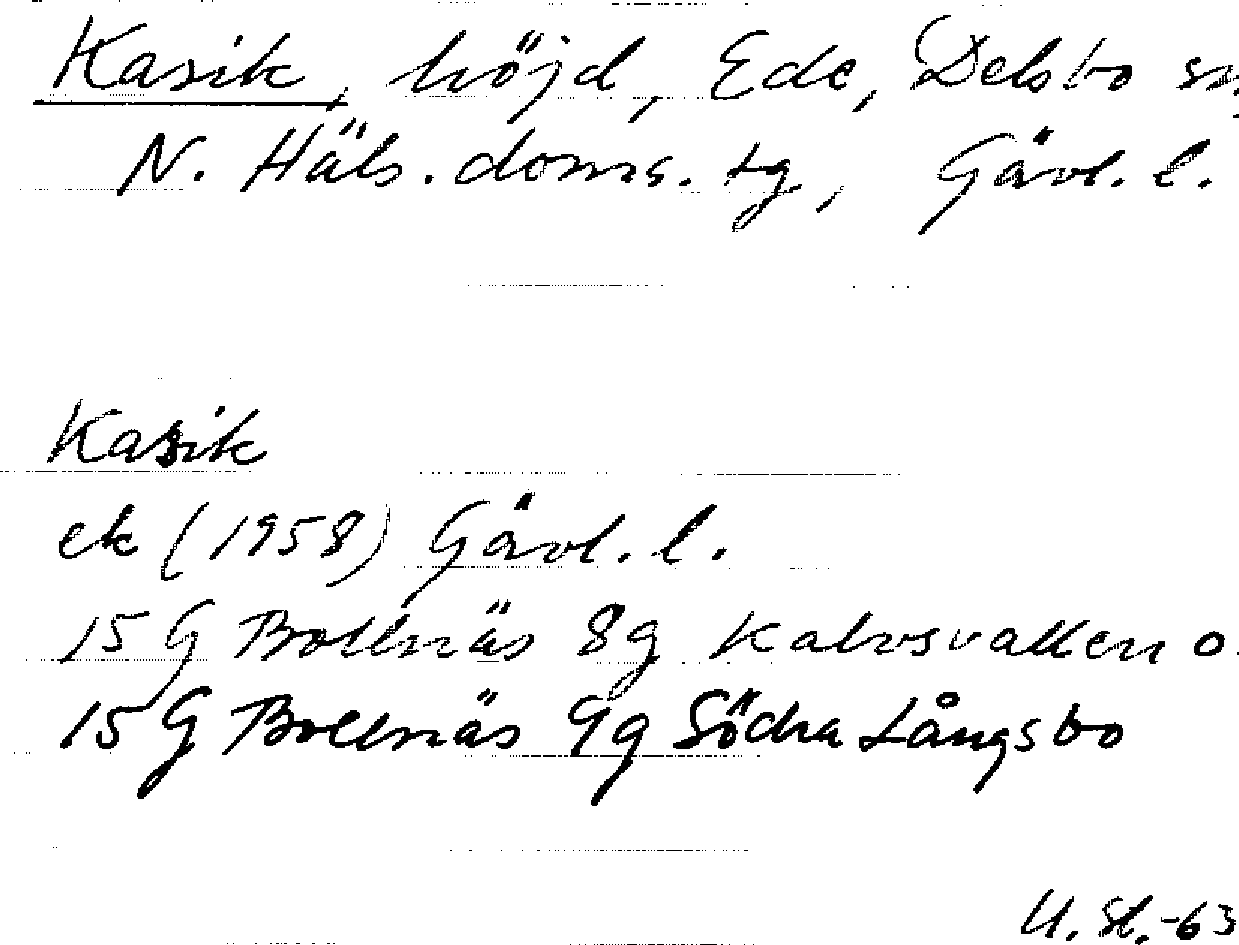 Kasik, höjd, Ede, Delsbo sn,
N. Häls. doms. tg, Gävl. l.
Kasik
ek (1958) Gävl. l.
15 G Bollnäs 8g Kalvsvallen o.
15 G Bollnäs 9g Södra Långsbo
U. St. -63